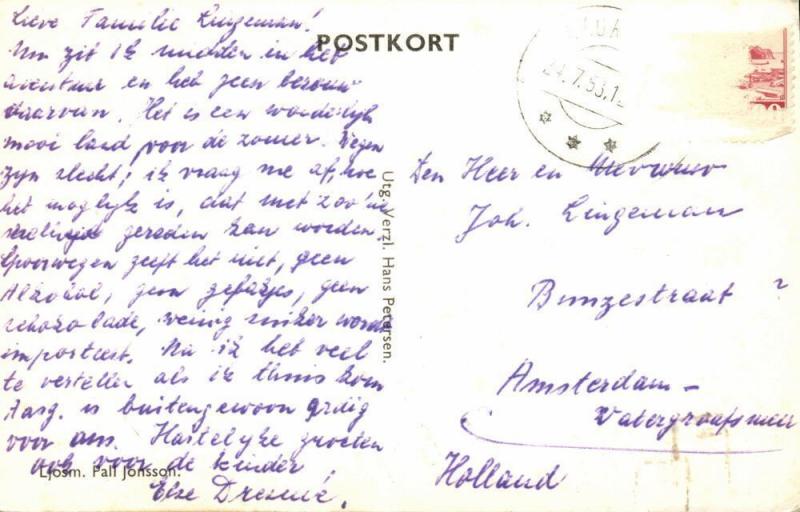 Lieve Familie Lingeman!
Nu zit ik midden in het
avontuur en heb geen berouw
daarvan. Het is een wonderlijk
mooi land voor de zomer. Wegen
zijn slecht; ik vraag me af, hoe
het moglijk is, dat met zoo'n
gereden kan worden.
Spoorwegen geeft het niet, geen
Alkohol, geen gebakjes, geen
schokolade, weinig suiker word
importeert. Na ik heb veel
te vertellen als ik thuis kom
Aasg. is buitengewoon ardig
voor ons. Hartelijke groeten
ook voor de kinder,
Else
Ljósm. Páll Jónsson.
POSTKORT
24.7.53.
Utg. Verzl. Hans Petersen.
Den Heer en Mevrouw
Joh. Lingeman
Bunzestraat ?
Amsterdam -
Watergraafsmeer
Holland